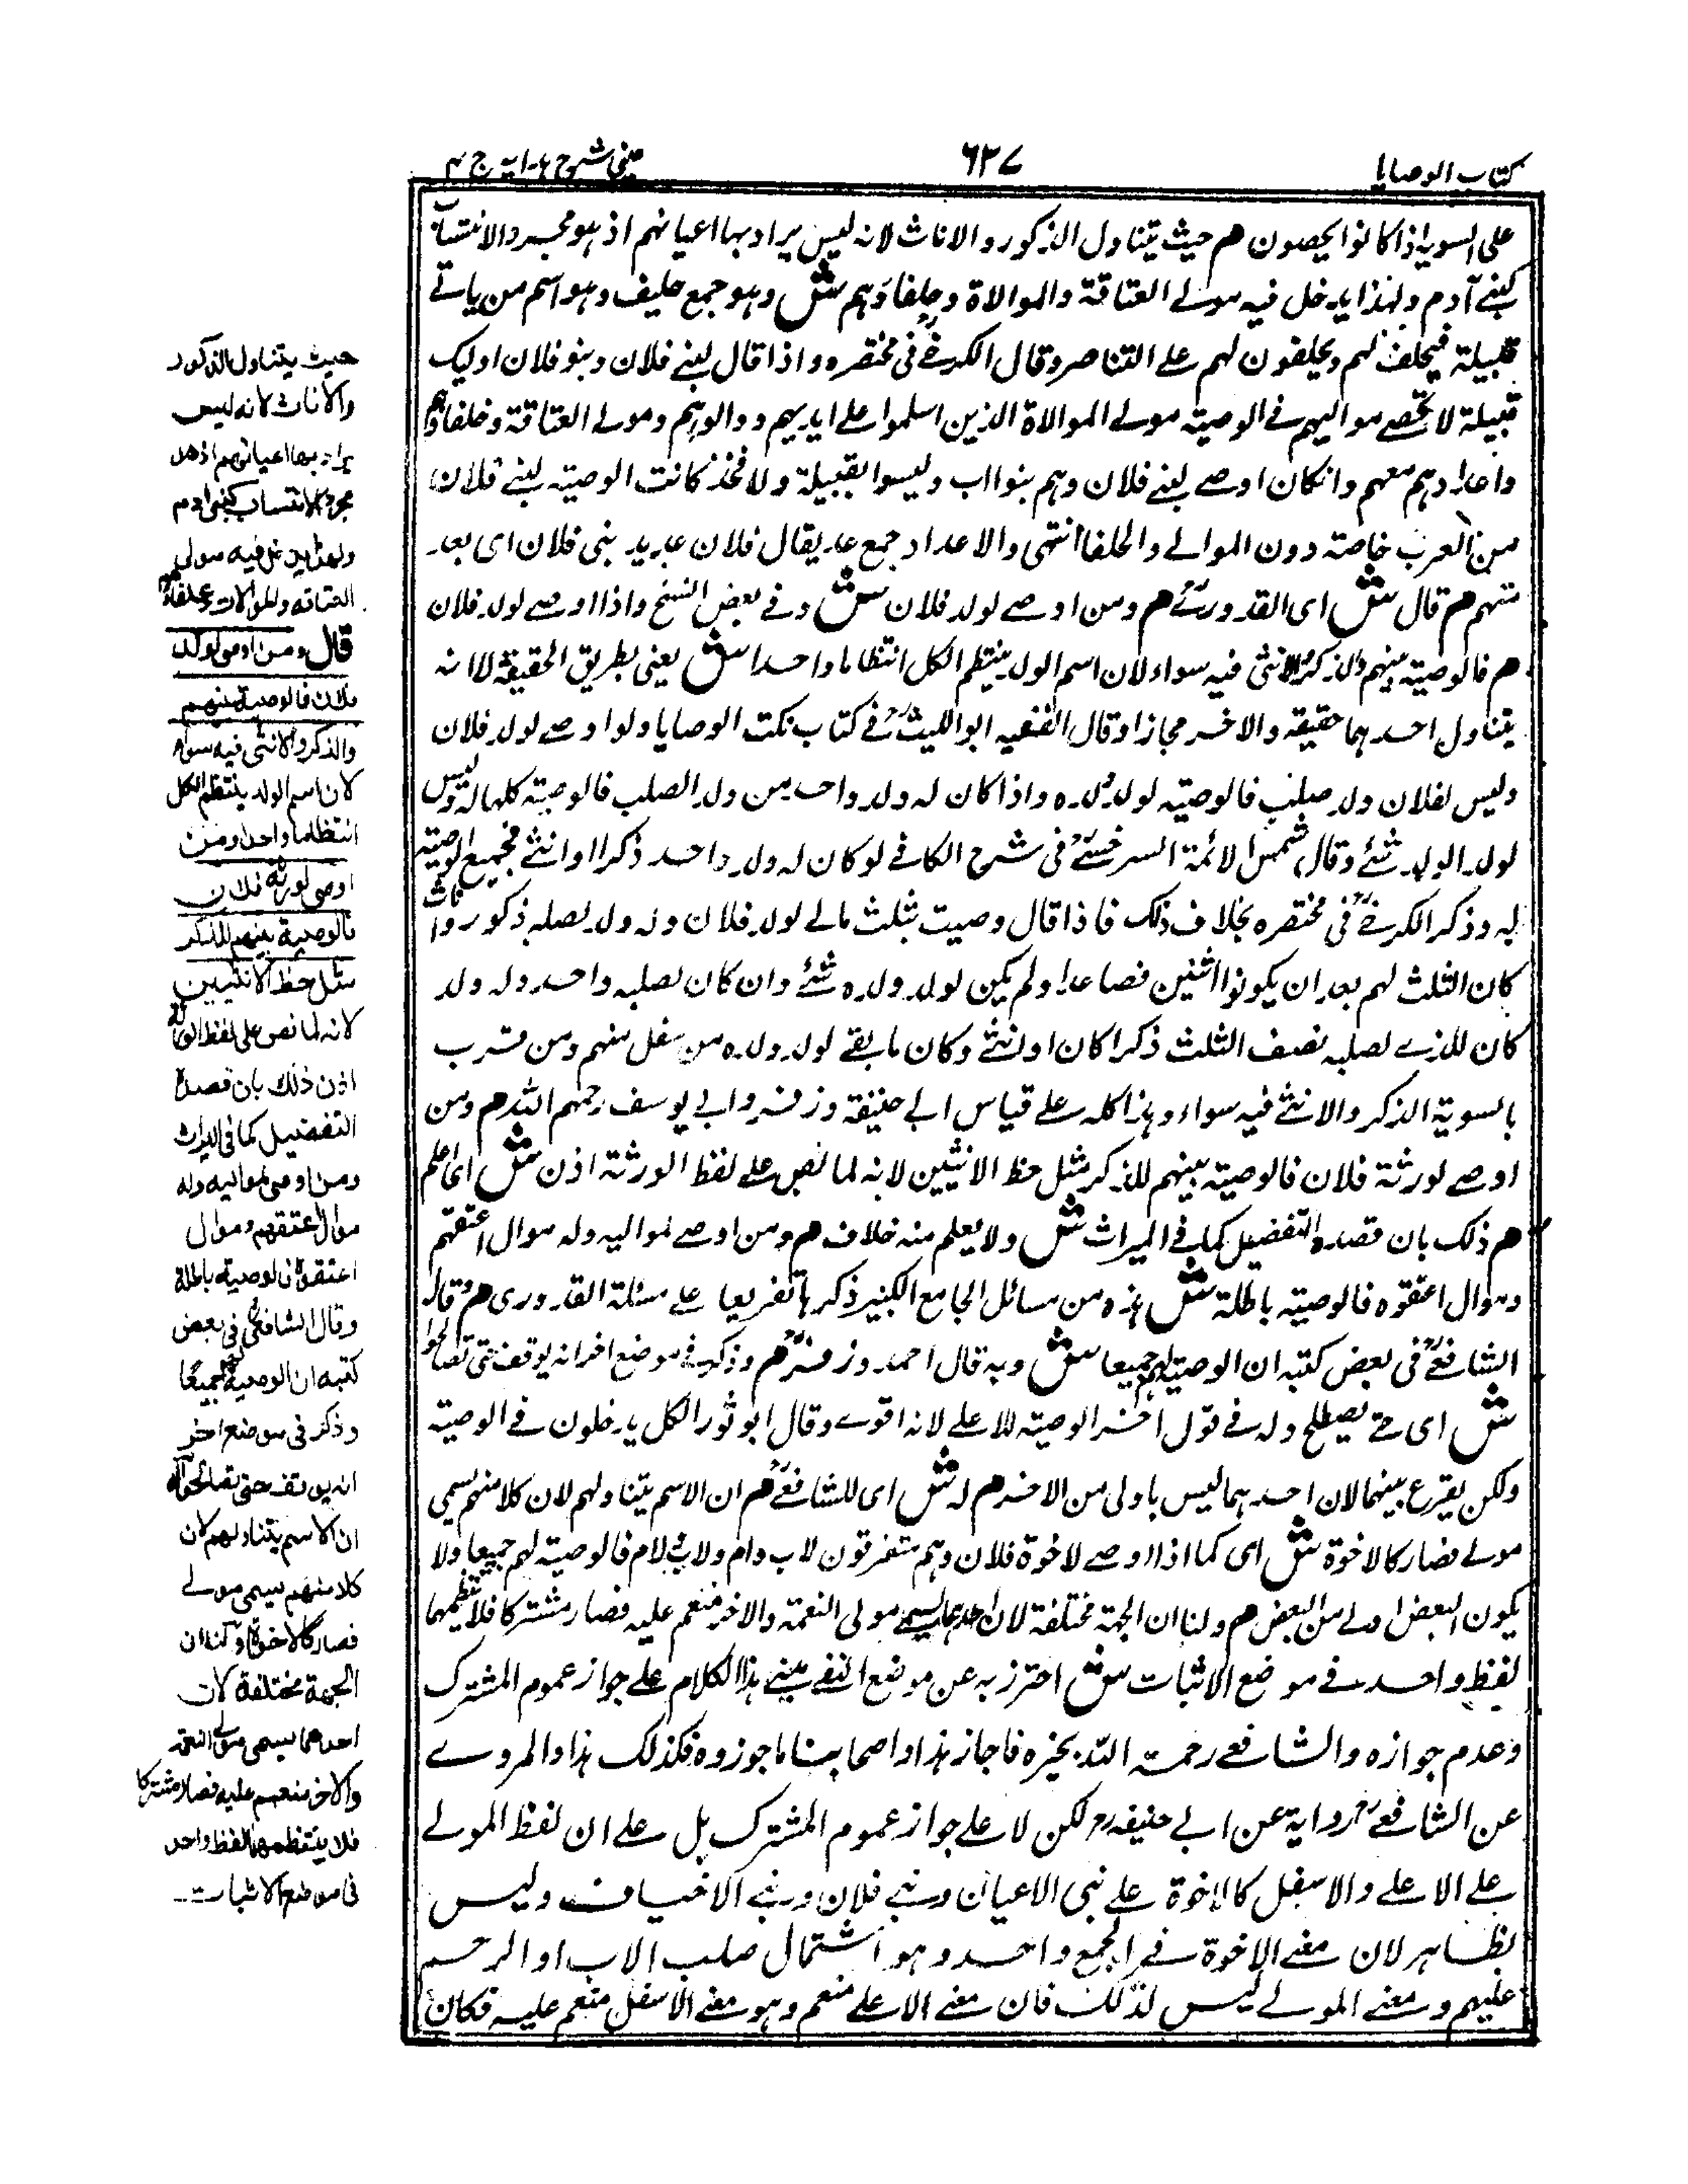 كتاب الوصايا
٦٣٧
عيني شرح هدايه ج ٤
على السوية اذا كانوا يحصون م حيث يتناول الذكور والاناث لانه ليس يراد بها اعيانهم اذ هو مجرد الانتساب
كبني آدم ولهذا يدخل فيه مولى العتاقة والموالاة وحلفاؤهم ش وهو جمع حليف وهو اسم من ياتي
قبيلة فيحلف لهم ويحلفون لهم على التناصر وقال الكرخي في مختصره واذا قال لبني فلان وبنو فلان اوليك
قبيلة لا تحصى مواليهم في الوصية مولى الموالاة الذين اسلموا على ايديهم ووالوهم ومولى العتاقة وحلفاؤهم
واعدادهم معهم وان كان اوصى لبني فلان وهم بنو اب وليسوا بقبيلة ولا فخذ كانت الوصية لبني فلان
من العرب خاصة دون الموالي والحلفا انتهى والاعداد جمع عديد يقال فلان عديد بني فلان اى يعد
منهم م قال ش اى القدوري م ومن اوصى لولد فلان ش وفي بعض النسخ واذا اوصى لولد فلان
م فالوصية بينهم والذكر والانثى فيه سواء لان اسم الولد ينتظم الكل انتظاما واحدا ش يعنى بطريق الحقيقة لا انه
يتناول احدهما حقيقة والاخر مجازا وقال الفقيه ابو الليث في كتاب نكت الوصايا ولو اوصى لولد فلان
وليس لفلان ولد صلب فالوصية لولد ولده واذا كان له ولد واحد من ولد الصلب فالوصية كلها له وليس
لولد الولد شئ وقال شمس الائمة السرخسي في شرح الكافي لو كان له ولد واحد ذكرا او انثى فجميع الوصية
له وذكر الكرخي في مختصره بخلاف ذلك فاذا قال وصيت بثلث مالي لولد فلان وله ولد لصلبه ذكور واناث
كان الثلث لهم بعد ان يكونوا اثنين فصاعدا ولم يكن لولد ولده شئ وان كان لصلبه واحد وله ولد ولد
كان للذي لصلبه نصف الثلث ذكرا كان او انثى وكان ما بقى لولد ولده من سفل منهم ومن قرب
بالسوية الذكر والانثى فيه سواء وهذا كله على قياس ابي حنيفة وزفر وابي يوسف رحمهم الله م ومن
اوصى لورثة فلان فالوصية بينهم للذكر مثل حظ الانثيين لانه لما نص على لفظ الورثة اذن ش اى اعلم
م ذلك بان قصده التفضيل كما في الميراث ش ولا يعلم منه خلاف م ومن اوصى لمواليه وله موال اعتقهم
وموال اعتقوه فالوصية باطلة ش هذه من مسائل الجامع الكبير ذكرها تفريعا على مسئلة القدوري م وقال
الشافعي في بعض كتبه ان الوصية لهم جميعا ش وبه قال احمد وزفر م وذكر في موضع اخر انه يوقف حتى تصالحوا
ش اى حتى يصطلح وله في قول اخر الوصية للاعلى لانه اقوى وقال ابو ثور الكل يدخلون في الوصية
ولكن يقرع بينهما لان احدهما ليس باولى من الاخر م له ش اى للشافعي م ان الاسم يتناولهم لان كلا منهم يسمى
مولى فصار كالاخوة ش اى كما اذا اوصى لاخوة فلان وهم متفرقون لاب وام ولاب ولام فالوصية لهم جميعا ولا
يكون البعض اولى من البعض م ولنا ان الجهة مختلفة لان احدهما يسمى مولى النعمة والاخر منعم عليه فصار مشتركا فلا ينتظمهما
لفظ واحد في موضع الاثبات ش احترز به عن موضع النفي يبنى هذا الكلام على جواز عموم المشترك
وعدم جوازه والشافعي رحمة الله يجيزه فاجاز هذا واصحابنا ما جوزوه فكذلك هذا والمروي
عن الشافعي رواية عن ابي حنيفة لكن لا على جواز عموم المشترك بل على ان لفظ المولى
على الاعلى والاسفل كالاخوة على بني الاعيان وبني فلان وبني الاخياف وليس
بظاهر لان معنى الاخوة في الجمع واحد وهو اشتمال صلب الاب او الرحم
عليهم ومعنى المولى ليس لذلك فان معنى الاعلى منعم وهو معنى الاسفل منعم عليه فكان
حيث يتناول الذكور
والاناث لانه ليس
يراد بها اعيانهم اذ هو
مجرد الانتساب كبني ادم
ولهذا يدخل فيه مولى
العتاقه والموالات وحلفاؤهم
قال ومن اوصى لولد
فلان فالوصية بينهم
والذكر والانثى فيه سواء
لان اسم الولد ينتظم الكل
انتظاما واحدا ومن
اوصى لورثة فلان
فالوصية بينهم للذكر
مثل حظ الانثيين
لانه لما نص على لفظ الورثة
اذن ذلك بان قصده
التفضيل كما في الميراث
ومن اوصى لمواليه وله
موال اعتقهم وموال
اعتقوه فالوصية باطلة
وقال الشافعي في بعض
كتبه ان الوصية لهم جميعا
وذكر في موضع اخر
انه يوقف حتى تصالحوا له
ان الاسم يتناولهم لان
كلا منهم يسمى مولى
فصار كالاخوة ولنا ان
الجهة مختلفة لان
احدهما يسمى مولى النعمة
والاخر منعم عليه فصار مشتركا
فلا ينتظمهما لفظ واحد
في موضع الاثبات